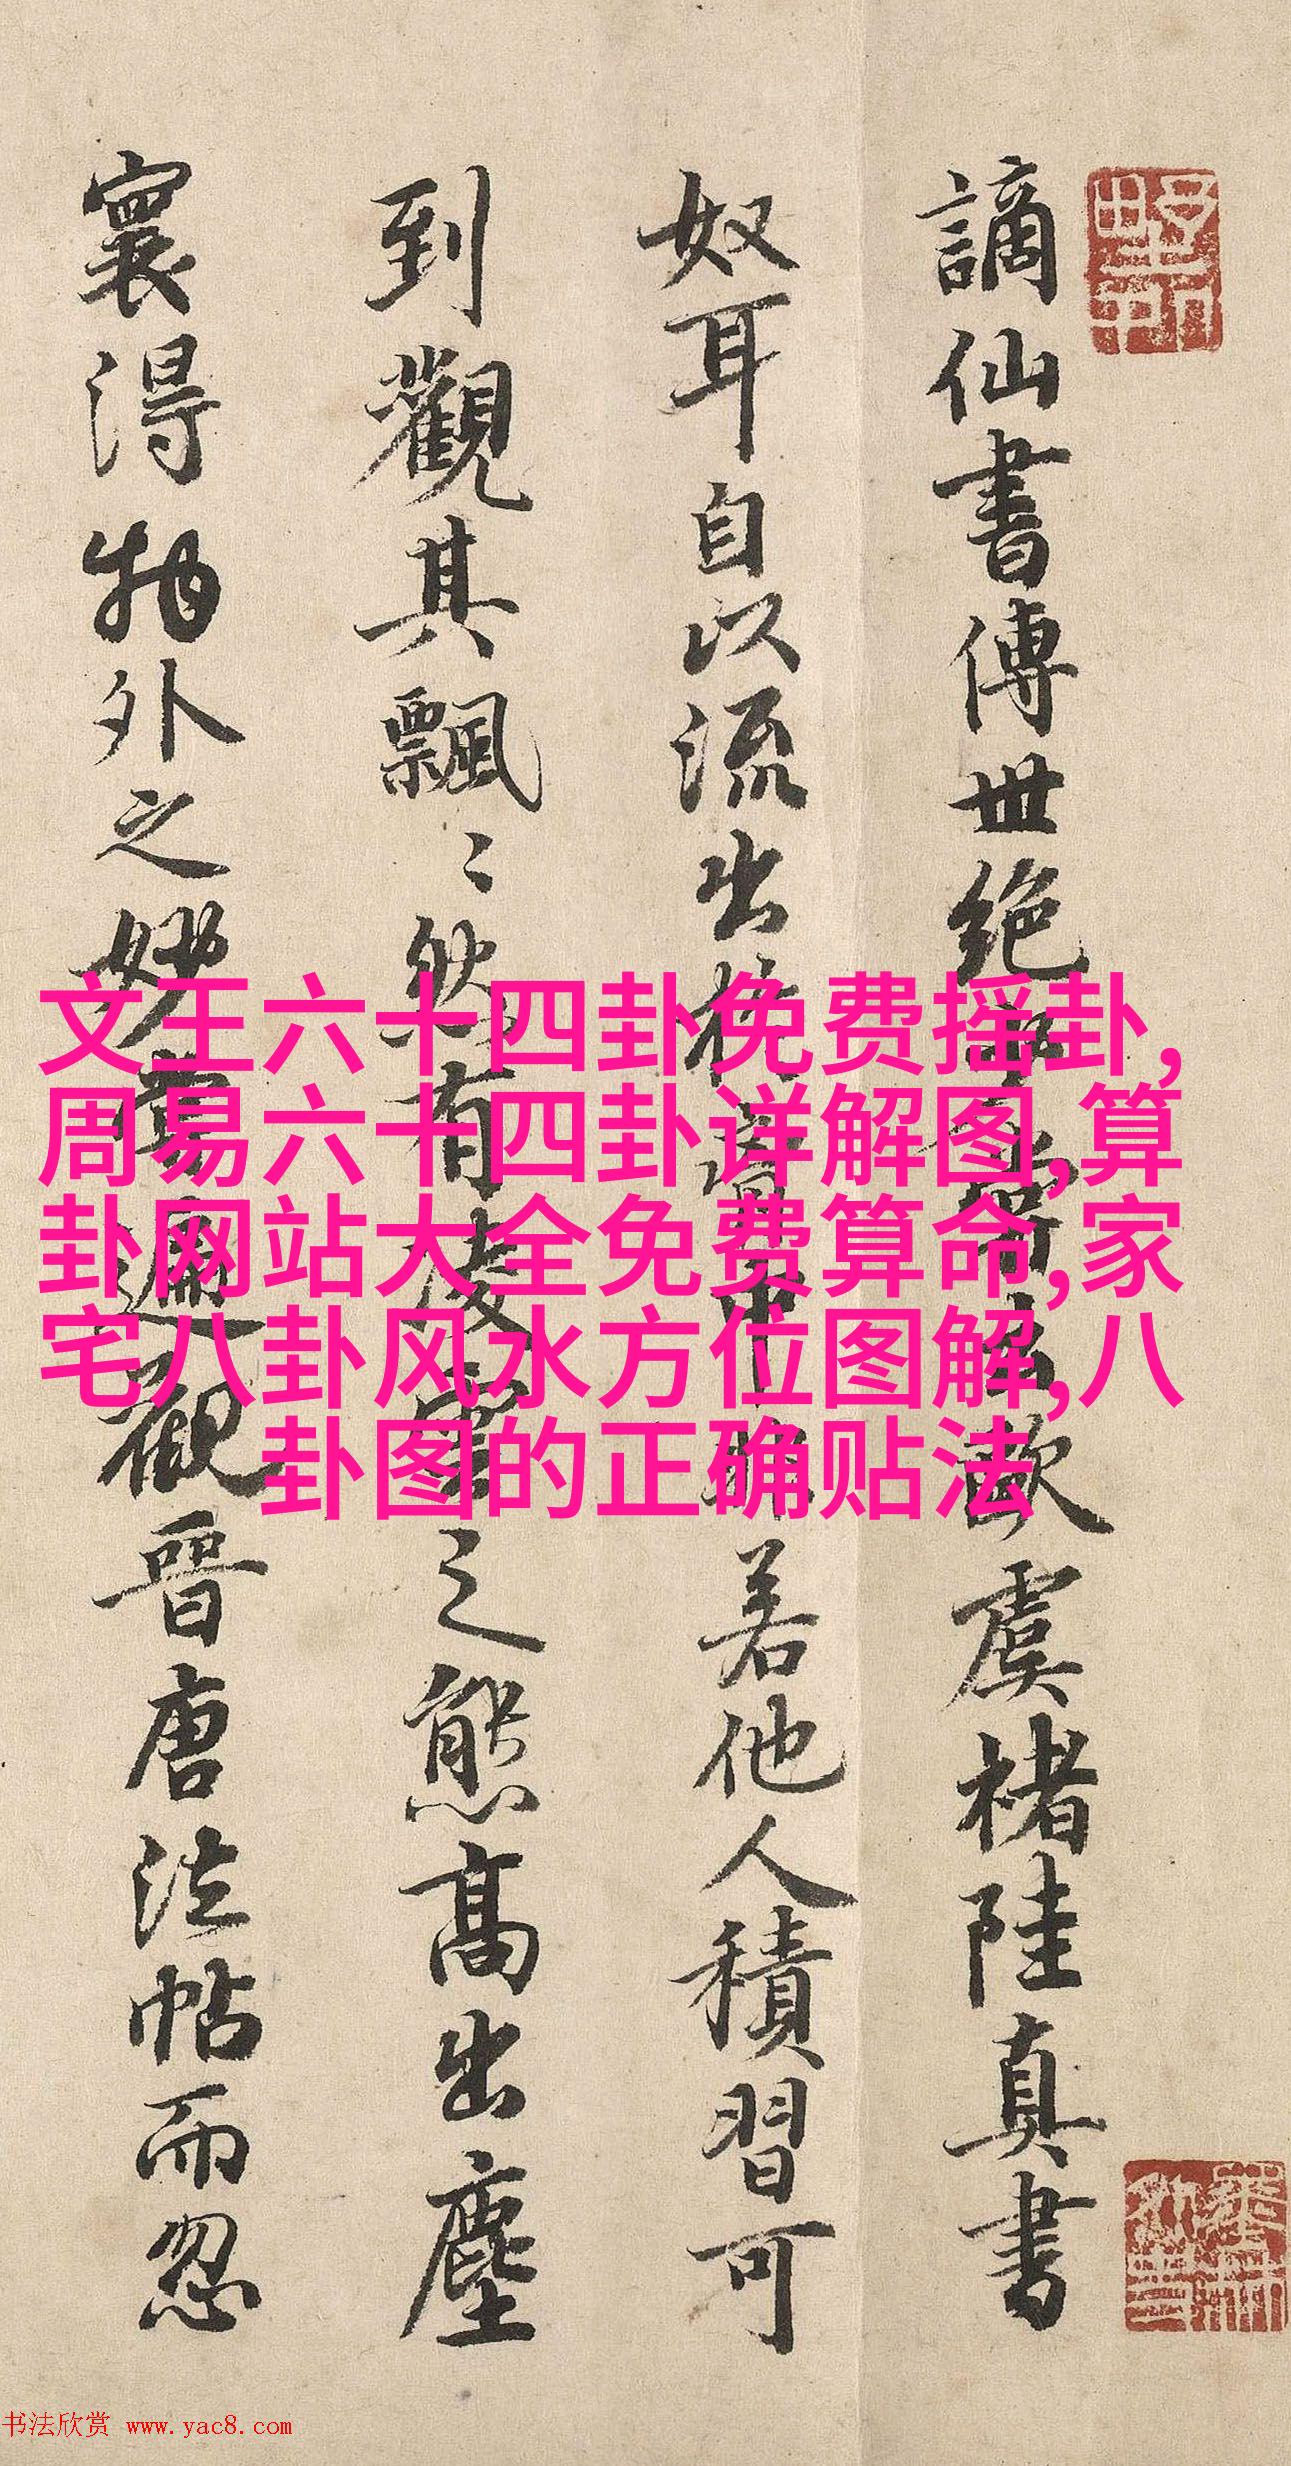 謫仙書傳世絶
虞褚陸真書
奴耳自以流出
若他人積習可
到觀其飄〻然有凌雲之態高出塵
寰得物外之妙
遍觀晉唐法帖而忽
文王六十四卦免费摇卦,
周易六十四卦详解图,算
卦网站大全免费算命,家
宅八卦风水方位图解,八
卦图的正确贴法
书法欣赏 www.yac8.com